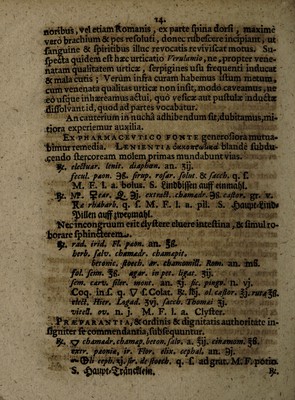 24.
noribus, vel etiam Romanis, ex parte spina dorsi, maximè
varò brachium & pes resoluti, donec rubescere incipiant, ut
sanguine & spiritibus illuc revocatis reviviscat motus. Su-
specta quidem est hæc urticatio Verulamio, ne, propter vene-
natam qualitatem urticæ, serpigines usu frequenti inducat
& mala cutis; Verùm infra crimen habemus istum metum,
cum venenata qualitas urticæ non insit, modo caveamus, ne
eò usque inhæreamus actui, quò vesicæ aut pustulæ inductæ
dissolvant id, quod ad partes vocabitur.
An cauterium in nucha adhibendum sit, dubitamus, mi-
tiora experimur auxilia.
Ex PHARMACEUTICO FONTE generosiora mutua-
bimur remedia. LENIENTIA blandè subdu-
cendo stercoream molem primas mundabunt vias.
℞. electuar. lenit. diaphœn. an. ʒij.
fecul. paon. ℈ß. sirup. rosar. solut. & sacch. q. s.
M. F. l. a. bolus. S. Lindbissen auff einmahl.
℞. ℈j. extract. chamadr. ℈ß. castor. gr. v.
Ra rhabarb. q. s. M. F. l. a. pil. S. Haupt-Lind-
Pillen auff zweymahl.
Nec incongruum erit clystere eluere intestina, & simul ro-
borare sphincterem.
℞. rad. irid. Fl. paon. an. ℥ß.
herb. salv. chamadr. chamapit.
betonic. stoech. ar. chamæmill. Rom. an. mß.
fol. senn. ℥ß. agar. in pet. ligat. ʒij.
sem. carv. siler. mont. an. ʒj. sic. pingv. n. vj.
Coq. in s. q. Colat. ℞. ℔j. ol. castor. ℥j. rutæ ℥ß.
elect. Hier. Logad. ʒvj. sacch. Thomæi ℥j.
vitell. ov. n. j. M. F. l. a. Clyster.
PRÆPARANTIA, & ordinis & dignitatis authoritate in-
signiter se commendantia, subsequuntur.
℞. chamadr. chamap. beton. salv. a. ℥ij. cinamom. ℥ß.
extr. paonia, ir. Flor. elix. cephal. an. ℈j.
ceph. ir. de stoech. q. s. ad grat. M. F. potio.
S. Haupt-Träncklein. ℞.